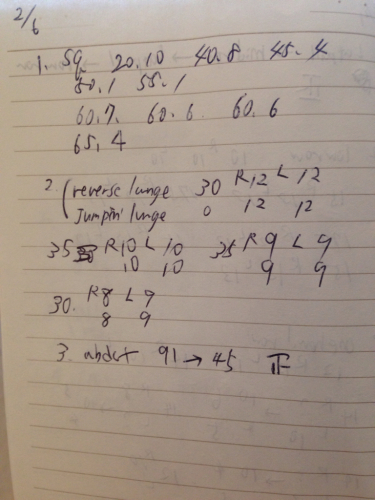 2/6
1. sq 20.10 40.8 45.4
50.1 55.1
60.7. 60.6. 60.6
65.4
2. (reverse lunge 30 R12 L 12
Jumpin lunge 0 12 12
35 R10 L 10 35 R9 L 9
10 10 9 9
30. R8 L9
8 9
3. abdct 91→45 正